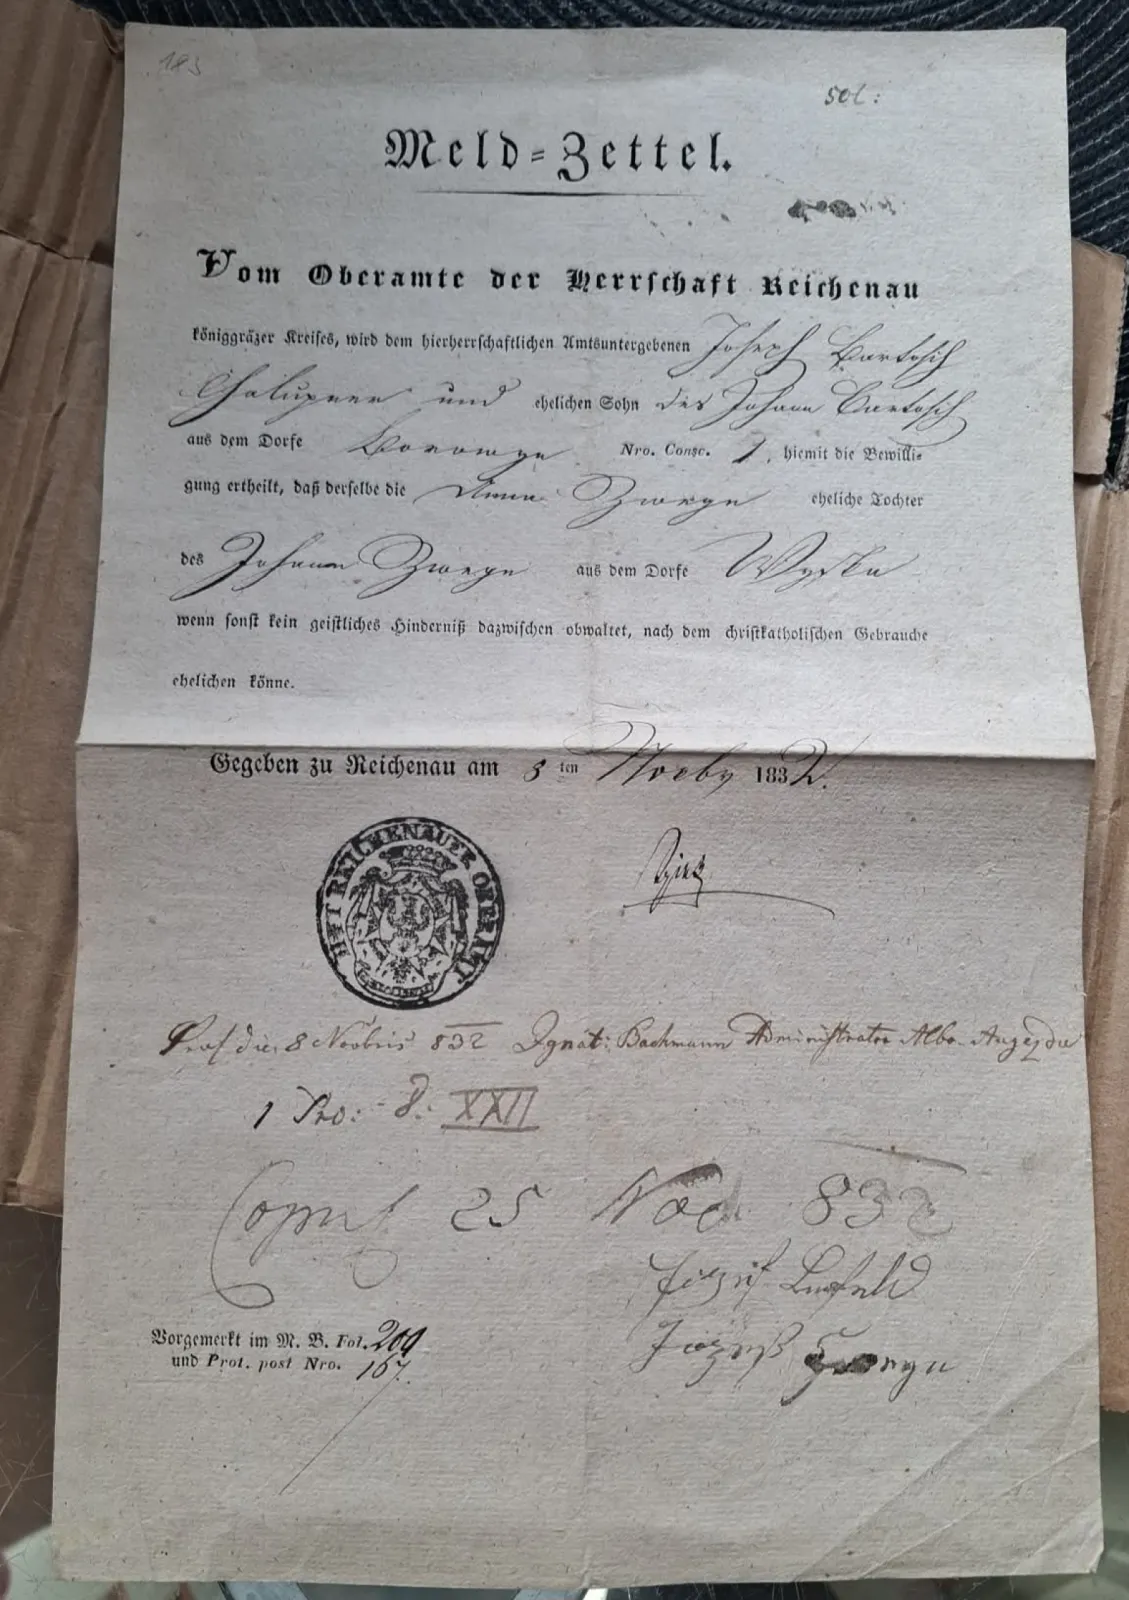 183
50 l:
Meld-Zettel.
Vom Oberamte der Herrschaft Reichenau
königgräzer Kreises, wird dem hierherrschaftlichen Amtsuntergebenen Joseph Bartosch
Chalupner und ehelichen Sohn des Johann Bartosch
aus dem Dorfe Nro. Consc. 1, hiemit die Bewilli-
gung ertheilt, daß derselbe die Anna eheliche Tochter
des Johann aus dem Dorfe
wenn sonst kein geistliches Hinderniß dazwischen obwaltet, nach dem christkatholischen Gebrauche
ehelichen könne.
Gegeben zu Reichenau am 3 ten Novbr 1832.
REICHENAUER OBERAMT
die 8 Novbris 832 Ignat: Bachmann Administrator Albo
1 Pro: - 8: XXII
Copul 25 832
Vorgemerkt im M. B. Fol. 209
und Prot. post Nro. 167.